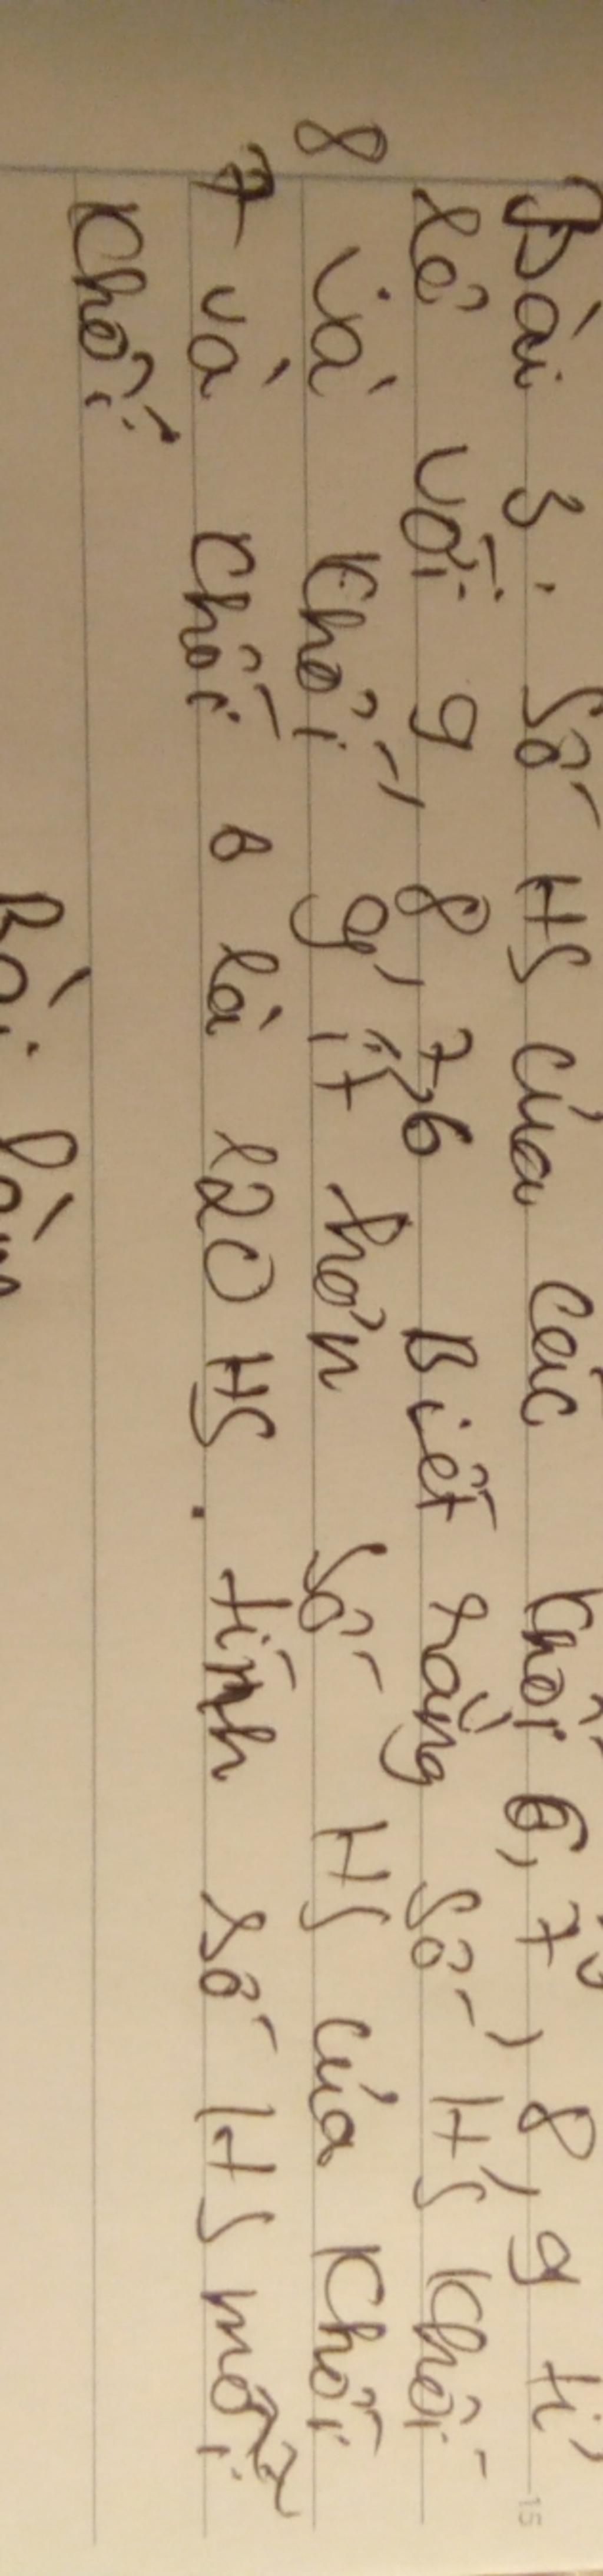 Bài 3. Số HS của các khối 6, 7, 8, 9 tỉ
lệ với 9, 8, 7, 6 Biết rằng số HS khối
8 và khối 9 ít hơn số HS của khối
7 và khối 6 là 120 HS. tính số HS mỗi
khối.
Bài làm
15